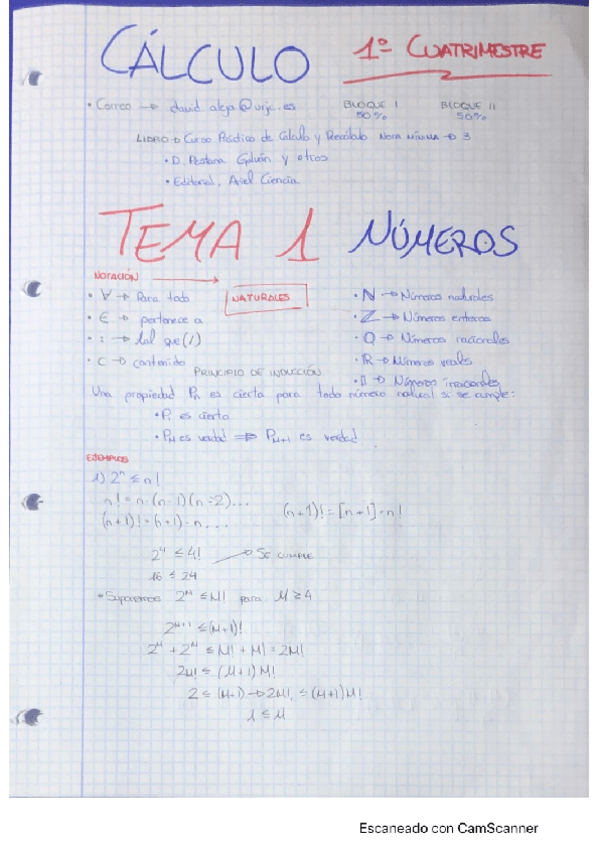 CÁLCULO 1º CUATRIMESTRE
• Correo → david.aleja@urjc.es BLOQUE I 50% BLOQUE II 50%
LIBRO → Curso Práctico de Cálculo y Precálculo Nota mínima → 3
• D. Pestana Galván y otros
• Editorial, Ariel Ciencia
TEMA 1 NÚMEROS
NOTACIÓN → NATURALES
• ∀ → Para todo
• ∈ → pertenece a
• : → tal que (/)
• ⊂ → contenido
• N → Números naturales
• Z → Números enteros
• Q → Números racionales
• R → Números reales
• I → Números irracionales
PRINCIPIO DE INDUCCIÓN
Una propiedad Pn es cierta para todo número natural si se cumple:
• P1 es cierto
• PM es verdad ⇒ PM+1 es verdad
EJEMPLOS
1) 2^n ≤ n!
n! = n·(n-1)(n-2)...
(n+1)! = (n+1)·n... (n+1)! = [n+1]·n!
2^4 ≤ 4! → SE CUMPLE
16 ≤ 24
• Suponemos 2^M ≤ M! para M ≥ 4
2^M+1 ≤ (M+1)!
2^M + 2^M ≤ M! + M! = 2M!
2M! ≤ (M+1) M!
2 ≤ (M+1) → 2M! ≤ (M+1)M!
1 ≤ M
Escaneado con CamScanner